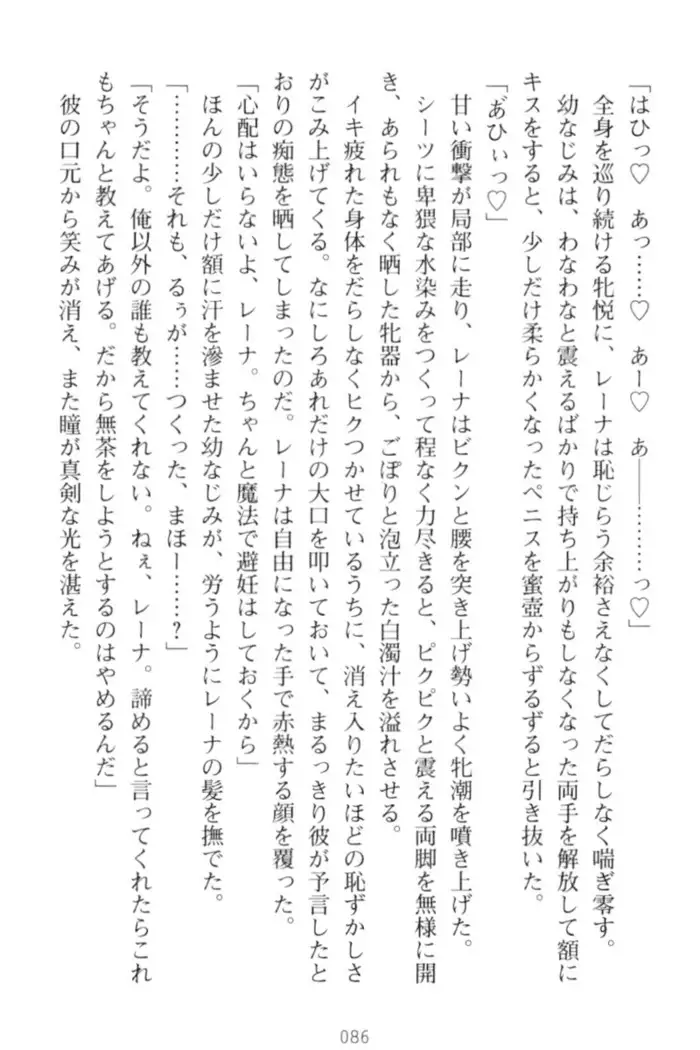 「はひっ♡　あっ……♡　あー♡　あ――………っ♡」
　全身を巡り続ける牝悦に、レーナは恥じらう余裕さえなくしてだらしなく喘ぎ零す。
　幼なじみは、わなわなと震えるばかりで持ち上がりもしなくなった両手を解放して額に
キスをすると、少しだけ柔らかくなったペニスを蜜壺からずるずると引き抜いた。
「あ゙ひぃっ♡」
　甘い衝撃が局部に走り、レーナはビクンと腰を突き上げ勢いよく牝潮を噴き上げた。
　シーツに卑猥な水染みをつくって程なく力尽きると、ピクピクと震える両脚を無様に開
き、あられもなく晒した牝器から、ごぽりと泡立った白濁汁を溢れさせる。
　イキ疲れた身体をだらしなくヒクつかせているうちに、消え入りたいほどの恥ずかしさ
がこみ上げてくる。なにしろあれだけの大口を叩いておいて、まるっきり彼が予言したと
おりの痴態を晒してしまったのだ。レーナは自由になった手で赤熱する顔を覆った。
「心配はいらないよ、レーナ。ちゃんと魔法で避妊はしておくから」
　ほんの少しだけ額に汗を滲ませた幼なじみが、労うようにレーナの髪を撫でた。
「…………それも、るぅが……つくった、まほー……？」
「そうだよ。俺以外の誰も教えてくれない。ねぇ、レーナ。諦めると言ってくれたらこれ
もちゃんと教えてあげる。だから無茶をしようとするのはやめるんだ」
　彼の口元から笑みが消え、また瞳が真剣な光を湛えた。
086